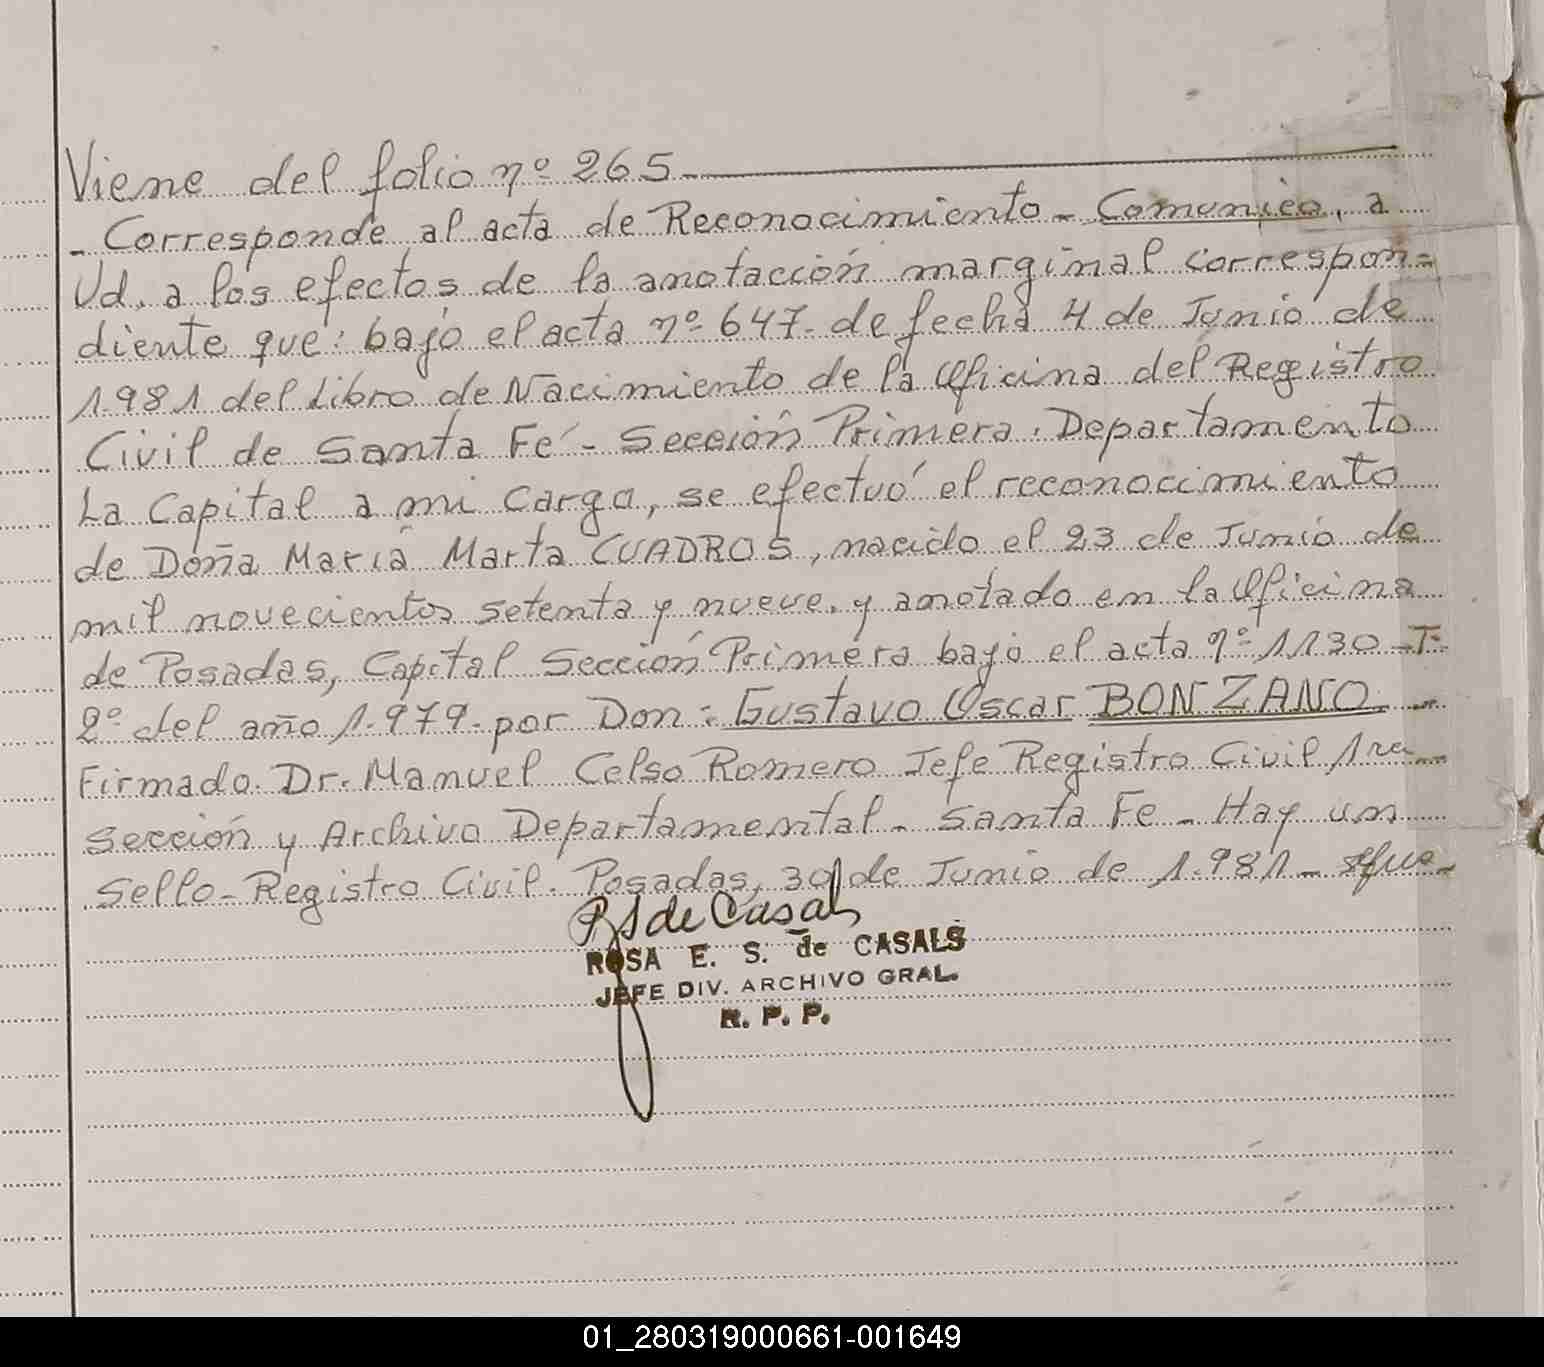 Viene del folio nº 265
- Corresponde al acta de Reconocimiento - Comunico, a
Ud. a los efectos de la anotacción marginal correspon=
diente que: bajo el acta nº 647. de fecha 4 de Junio de
1.981 del Libro de Nacimiento de la Oficina del Registro
Civil de Santa Fé - Sección Primera. Departamento
La Capital a mi cargo, se efectuó el reconocimiento
de Doña María Marta CUADROS, nacido el 23 de Junio de
mil novecientos setenta y nueve. y anotado en la Oficina
de Posadas, Capital Sección Primera bajo el acta nº 1130 - T-
2º del año 1.979. por Don: Gustavo Oscar BONZANO
Firmado. Dr. Manuel Celso Romero Jefe Registro Civil 1ra
Sección y Archivo Departamental - Santa Fe - Hay un
Sello - Registro Civil. Posadas, 30 de Junio de 1.981 -
RS de Casals
ROSA E. S. de CASALS
JEFE DIV. ARCHIVO GRAL.
R. P. P.
01_280319000661-001649